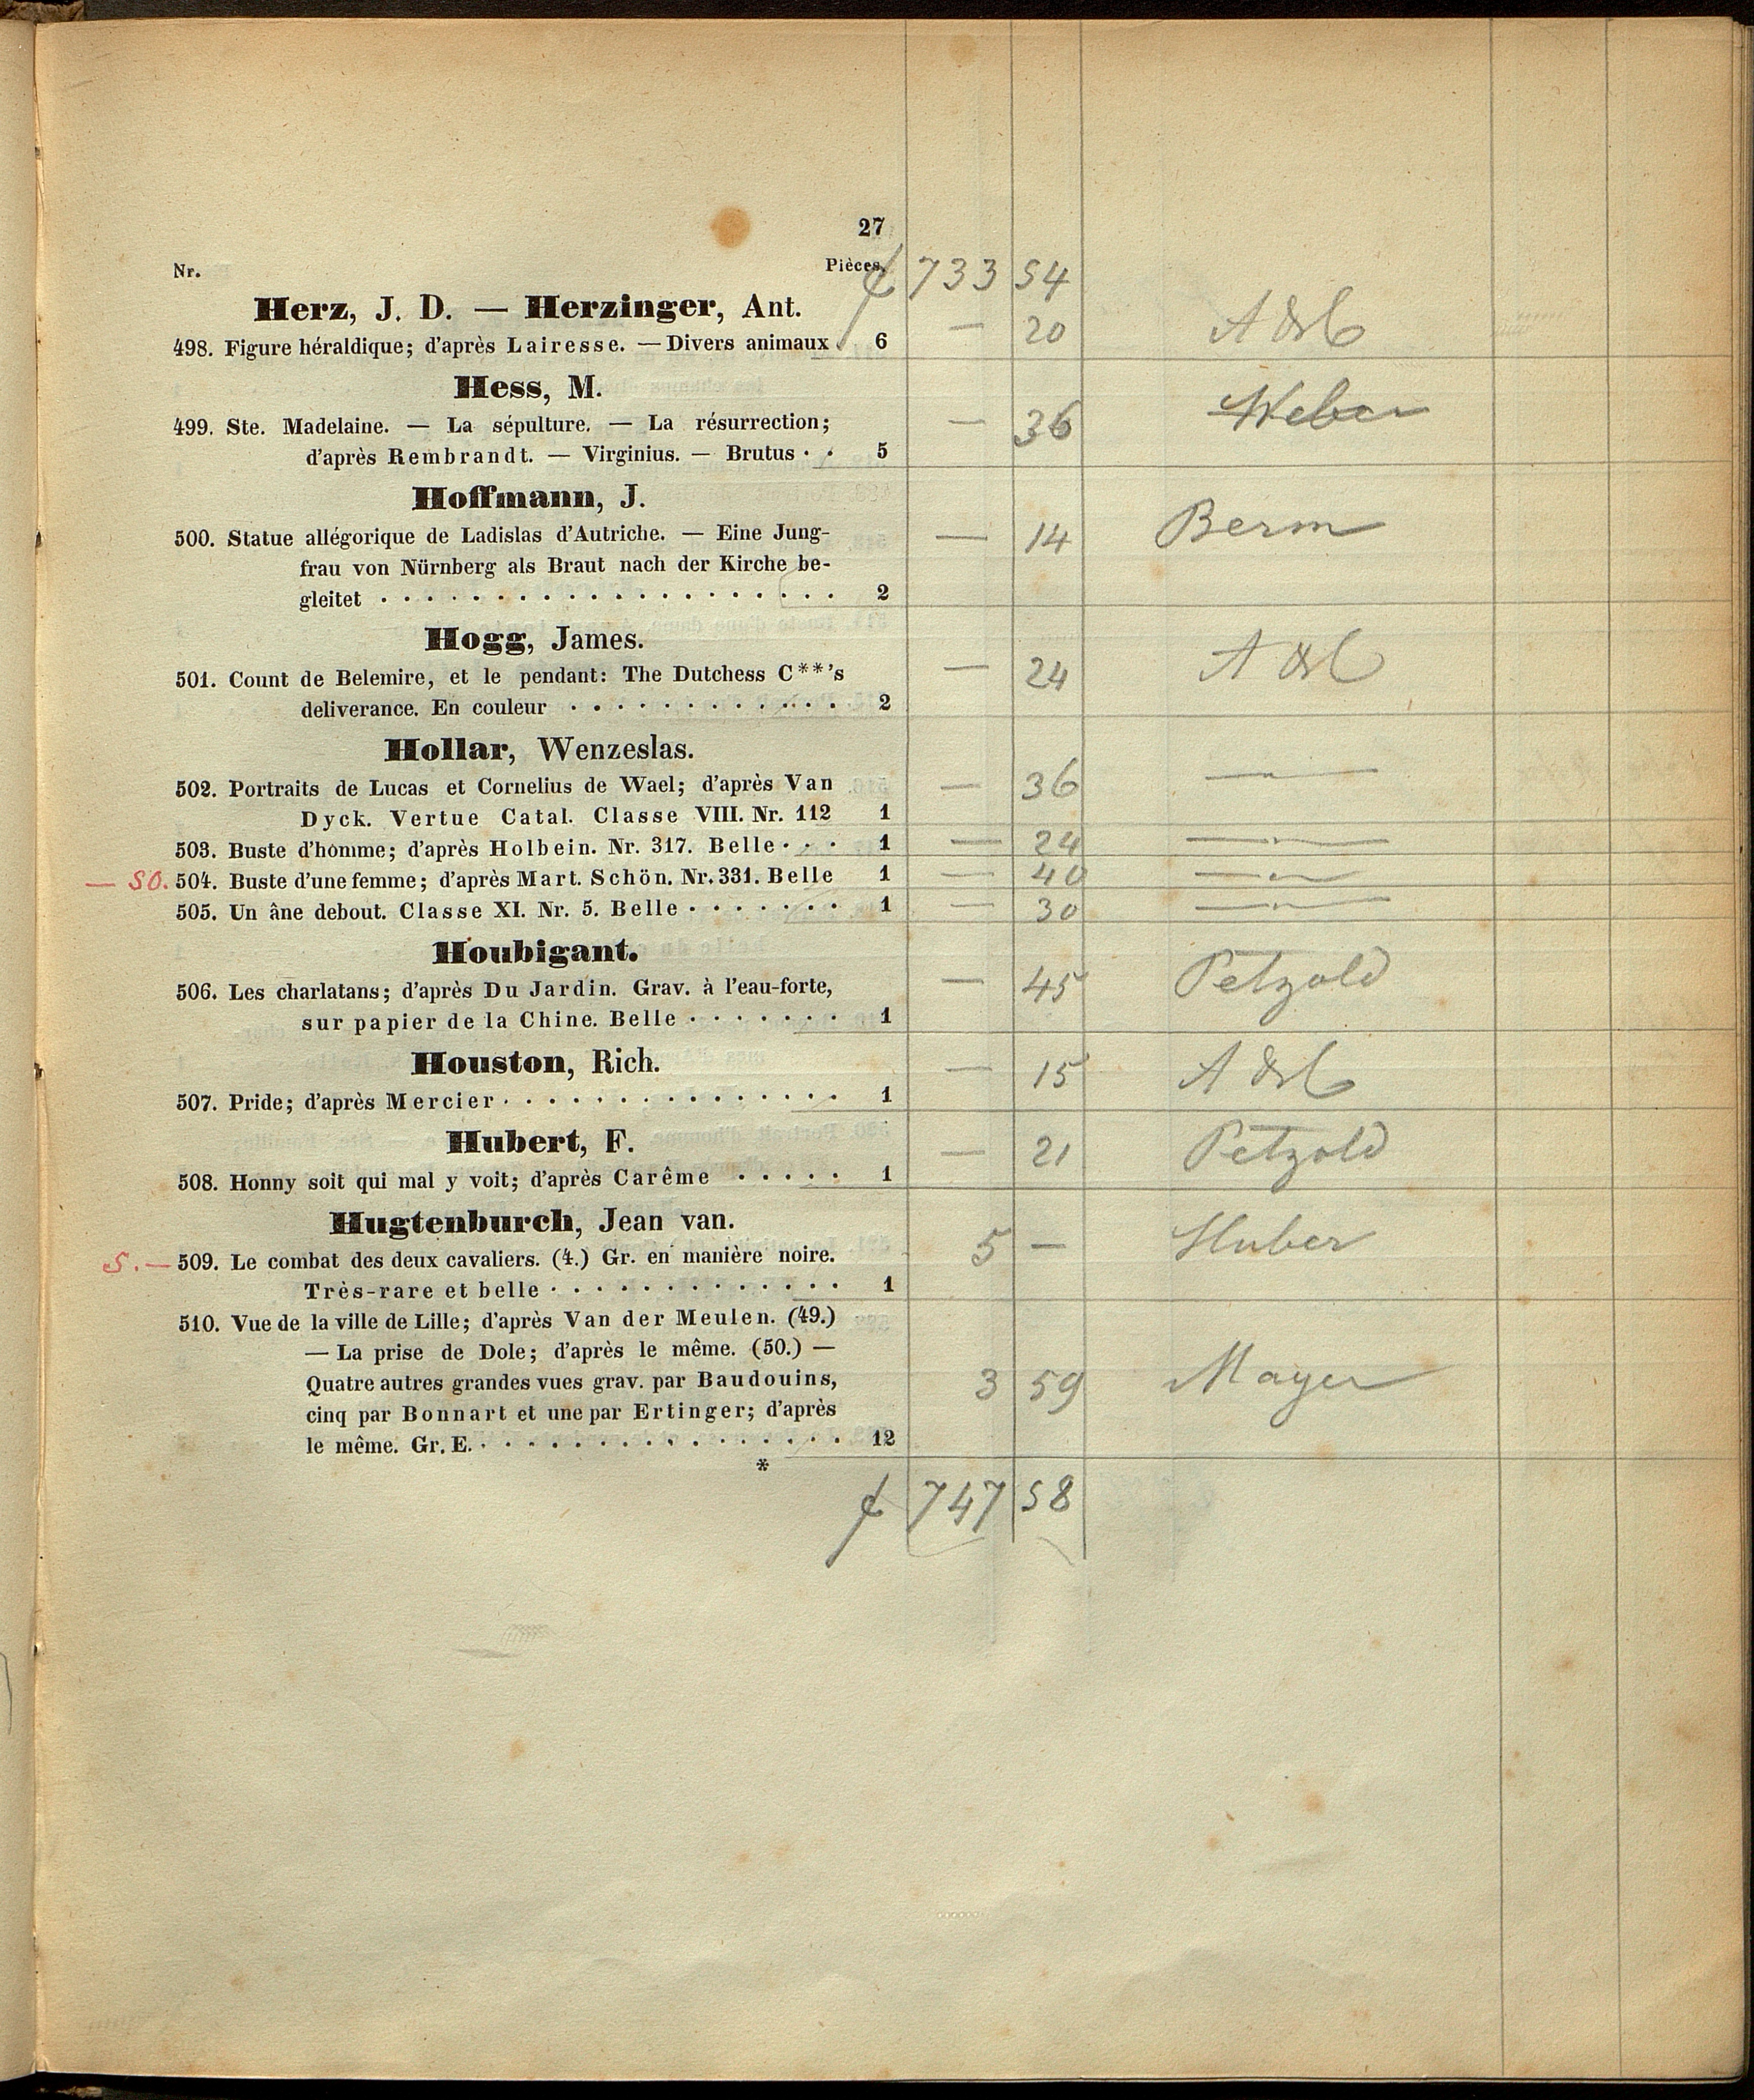 27
Nr. Pièces.
f 733 54
Herz, J. D. — Herzinger, Ant.
498. Figure héraldique; d'après Lairesse. — Divers animaux 6 — 20
Hess, M.
499. Ste. Madelaine. — La sépulture. — La résurrection;
d'après Rembrandt. — Virginius. — Brutus · · 5 — 36 Weber
Hoffmann, J.
500. Statue allégorique de Ladislas d'Autriche. — Eine Jung- — 14 Berm
frau von Nürnberg als Braut nach der Kirche be-
gleitet · · · · · · · · · · · · · · · · · · · · 2
Hogg, James.
501. Count de Belemire, et le pendant: The Dutchess C**'s — 24
deliverance. En couleur · · · · · · · · · · · · 2
Hollar, Wenzeslas.
502. Portraits de Lucas et Cornelius de Wael; d'après Van — 36 —"—
Dyck. Vertue Catal. Classe VIII. Nr. 112 1
503. Buste d'homme; d'après Holbein. Nr. 317. Belle · · · 1 — 24 —"—
— 50. 504. Buste d'une femme; d'après Mart. Schön. Nr. 331. Belle 1 — 40 —"—
505. Un âne debout. Classe XI. Nr. 5. Belle · · · · · · · 1 — 30 —"—
Houbigant.
506. Les charlatans; d'après Du Jardin. Grav. à l'eau-forte, — 45 Petzold
sur papier de la Chine. Belle · · · · · · · 1
Houston, Rich.
507. Pride; d'après Mercier · · · · · · · · · · · · · · · 1 — 15
Hubert, F.
508. Honny soit qui mal y voit; d'après Carême · · · · · 1 — 21 Petzold
Hugtenburch, Jean van.
5. — 509. Le combat des deux cavaliers. (4.) Gr. en manière noire. 5 — Huber
Très-rare et belle · · · · · · · · · · · · · 1
510. Vue de la ville de Lille; d'après Van der Meulen. (49.)
— La prise de Dole; d'après le même. (50.) —
Quatre autres grandes vues grav. par Baudouins, 3 59 Mayer
cinq par Bonnart et une par Ertinger; d'après
le même. Gr. E. · · · · · · · · · · · · · · · · 12
*
f 747 58